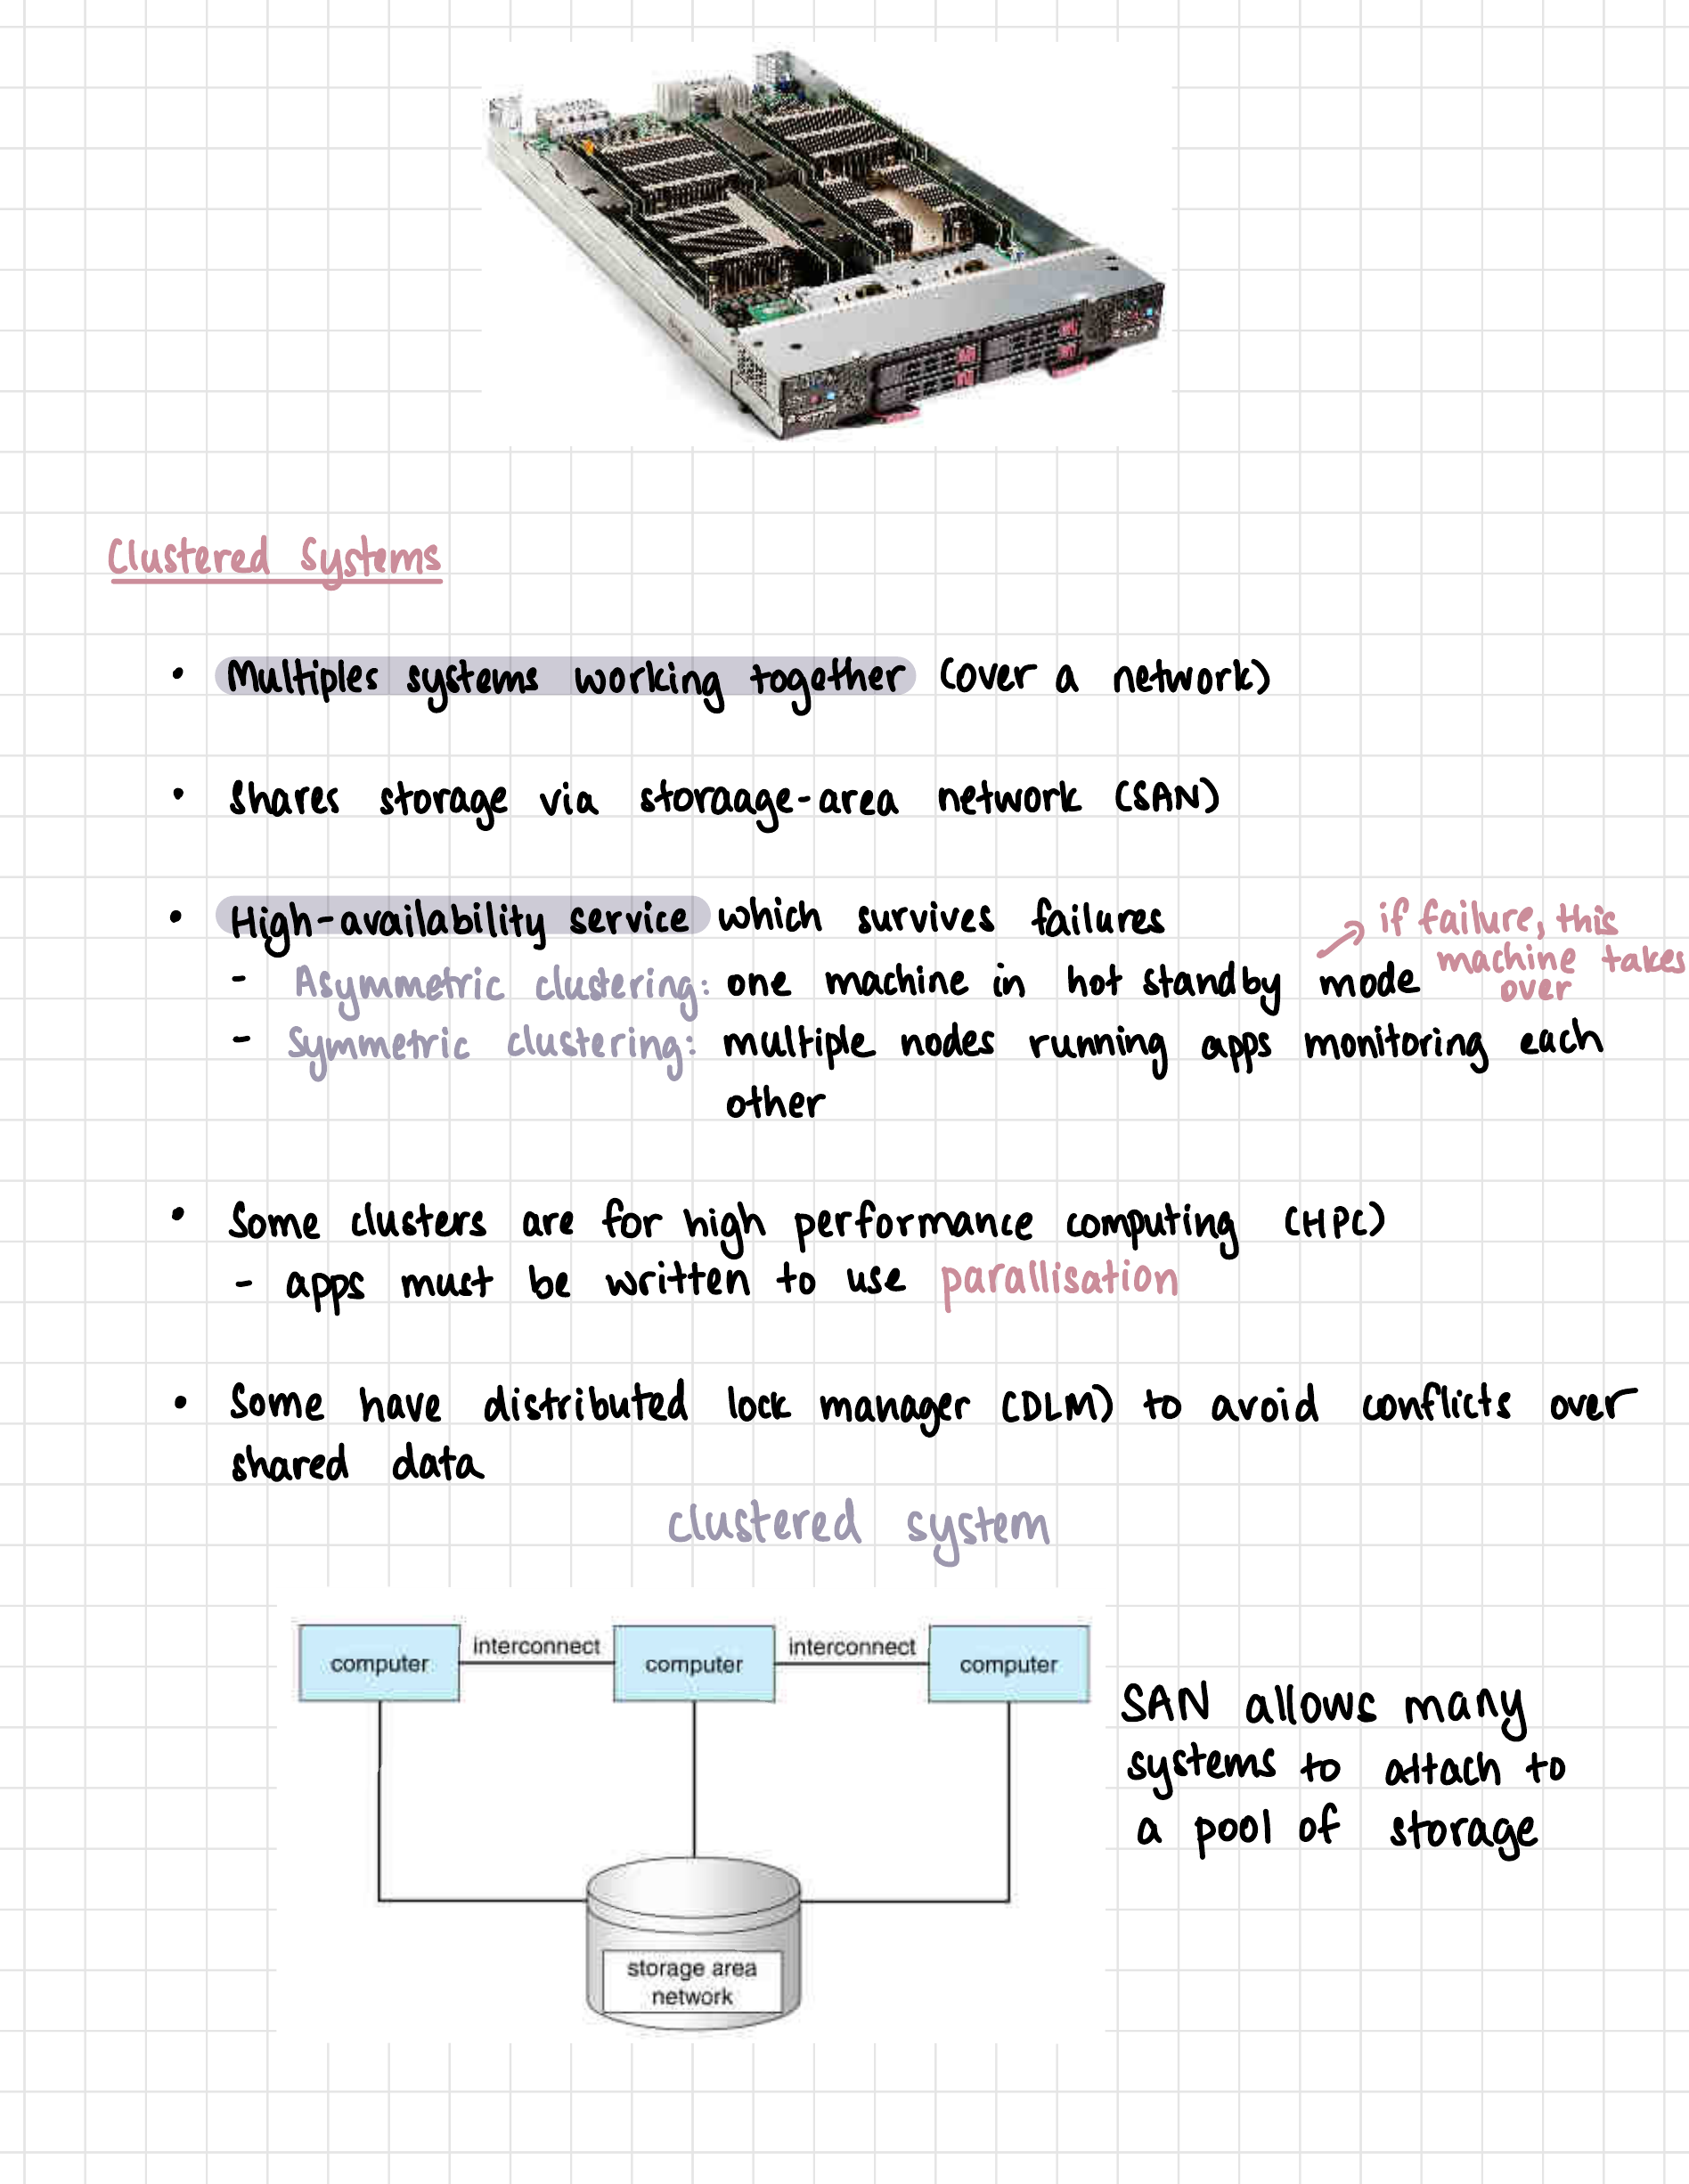 Clustered Systems
• Multiples systems working together (over a network)
• Shares storage via storaage-area network (SAN)
• High-availability service which survives failures
if failure, this
machine takes
over
- Asymmetric clustering: one machine in hot standby mode
- Symmetric clustering: multiple nodes running apps monitoring each
other
• Some clusters are for high performance computing (HPC)
- apps must be written to use parallisation
• Some have distributed lock manager (DLM) to avoid conflicts over
shared data
clustered system
computer interconnect computer interconnect computer
SAN allows many
systems to attach to
a pool of storage
storage area
network